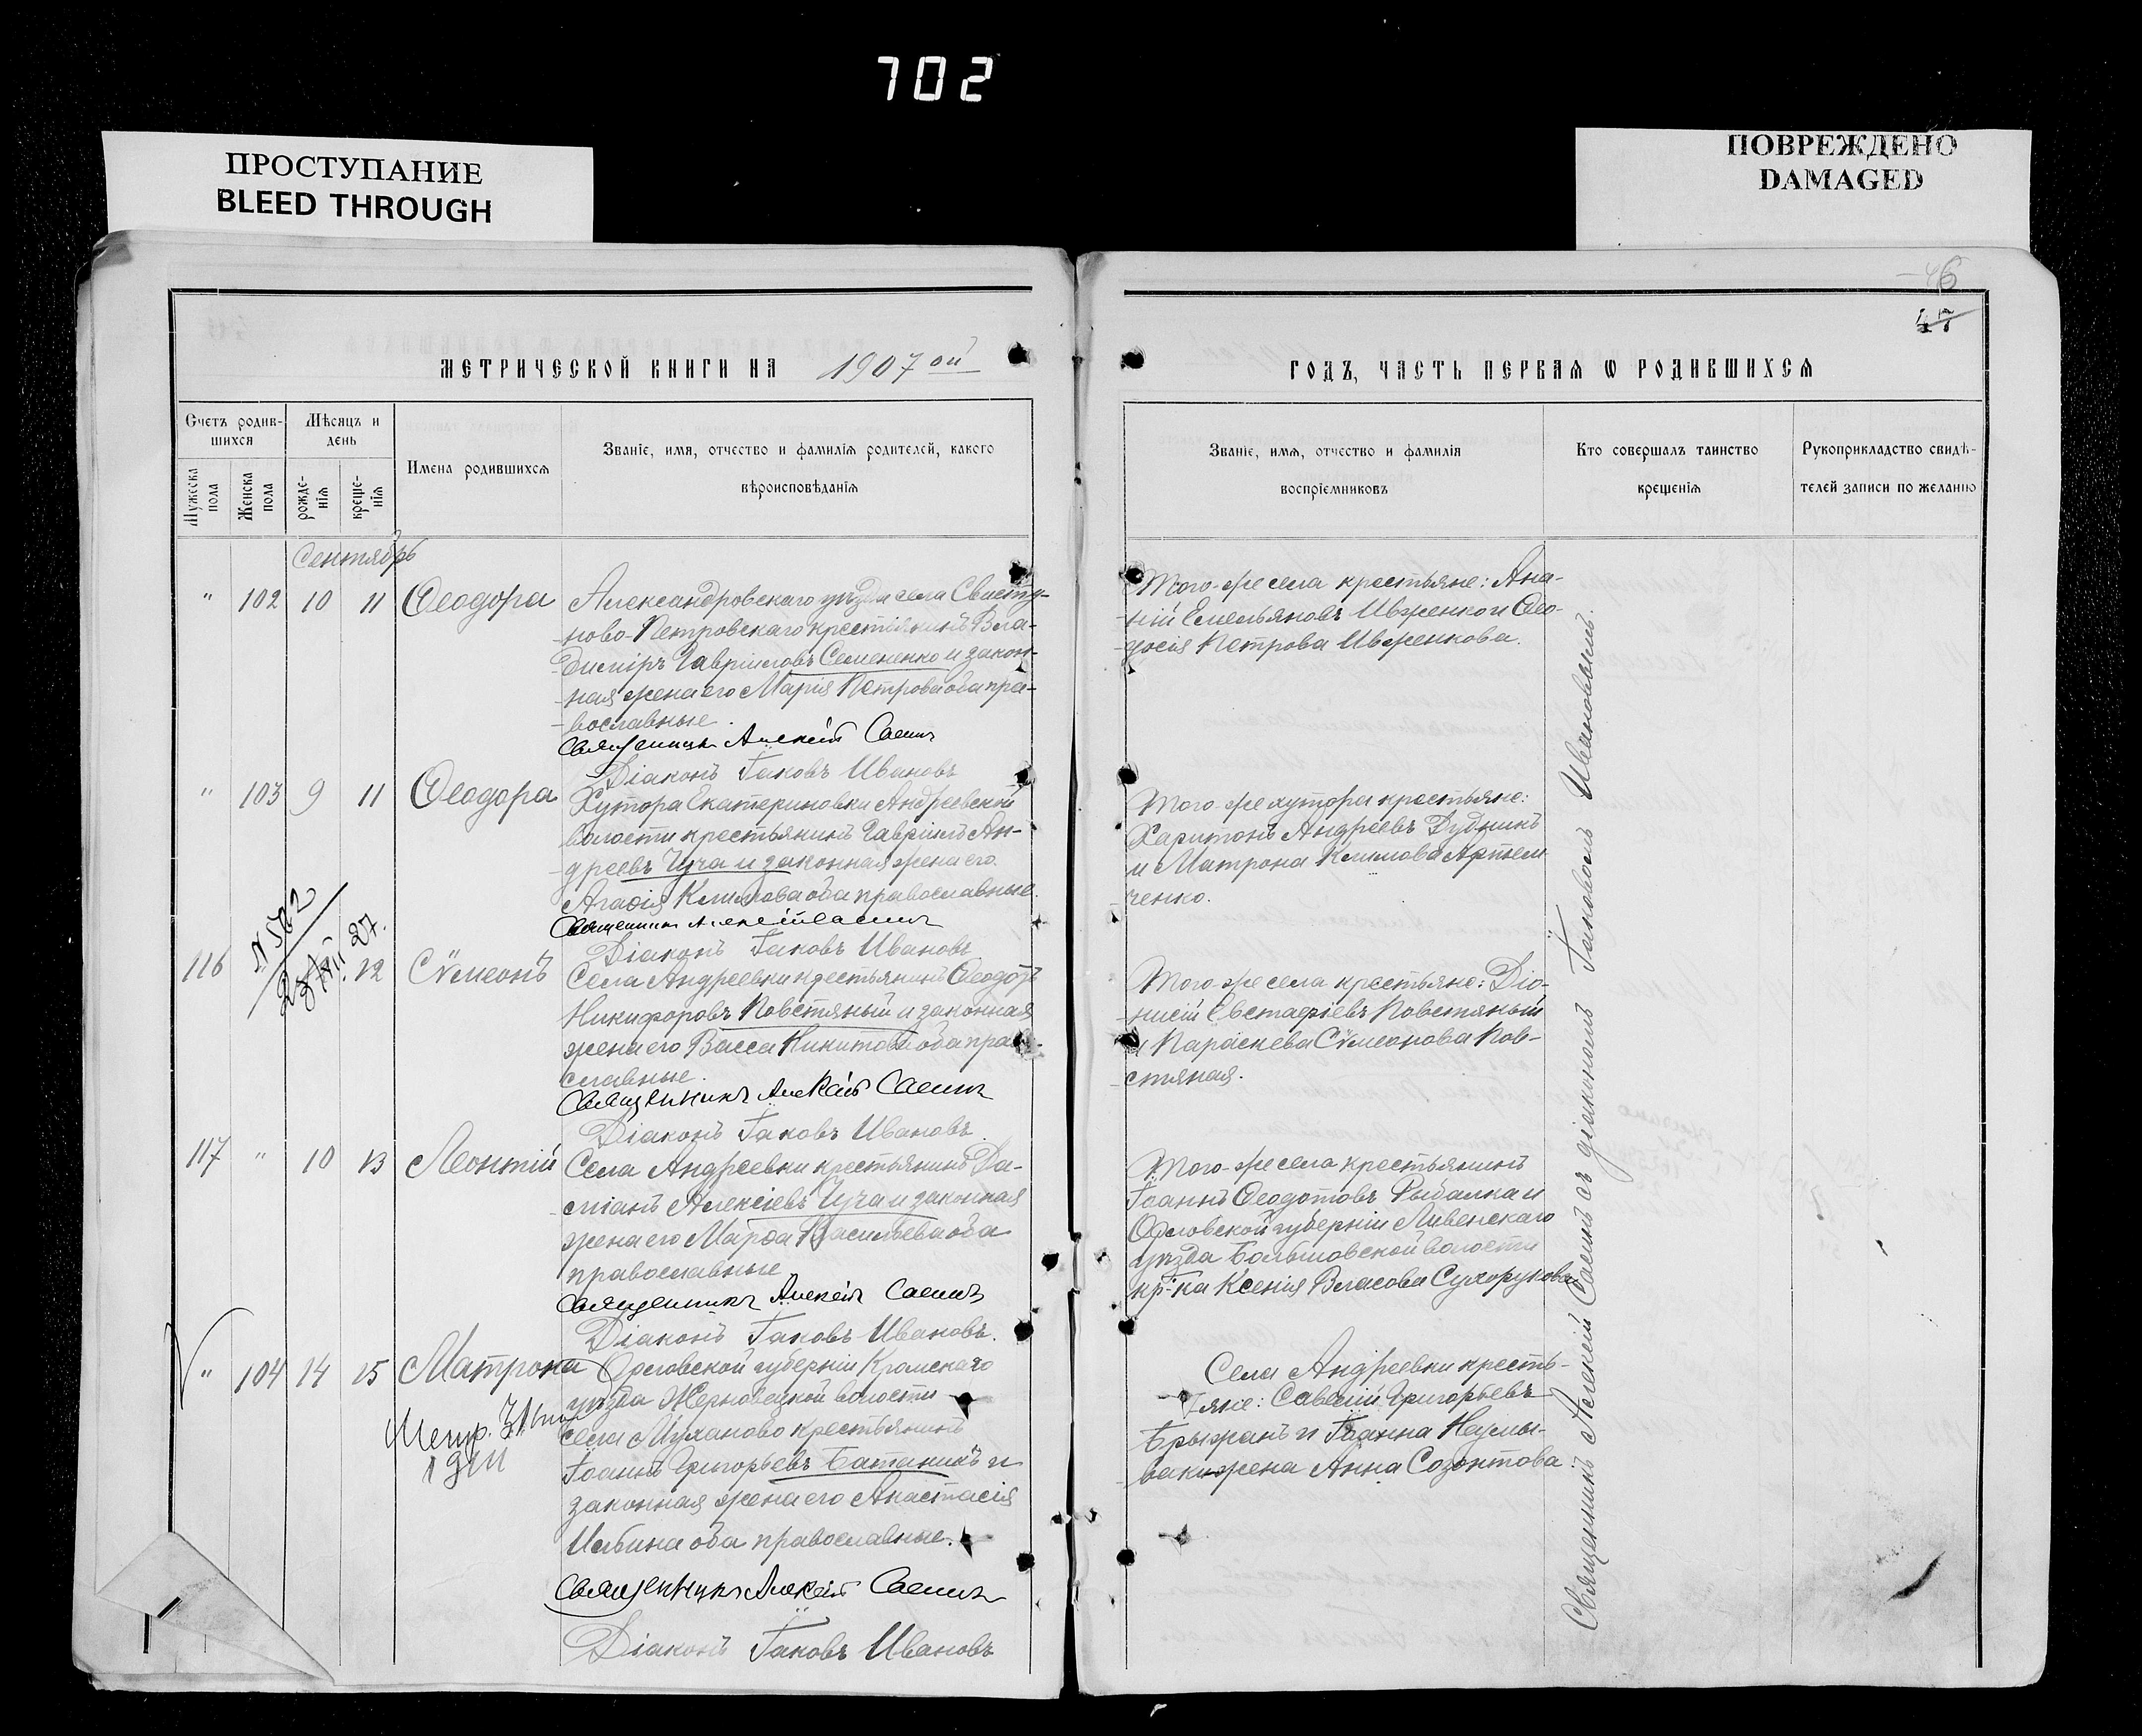 702
ПРОСТУПАНИЕ
BLEED THROUGH
ПОВРЕЖДЕНО
DAMAGED
46
47
МЕТРИЧЕСКОЙ КНИГИ НА 1907 ой
ГОДЪ, ЧАСТЬ ПЕРВАЯ Ѡ РОДИВШИХСЯ
Счетъ родив-
шихся
Мѣсяцъ и
день
Мужеска
пола
Женска
пола
рожде-
нія
креще-
нія
Имена родившихся
Званіе, имя, отчество и фамилія родителей, какого
вѣроисповѣданія
Званіе, имя, отчество и фамилія
воспріемниковъ
Кто совершалъ таинство
крещенія
Рукоприкладство свидѣ-
телей записи по желанію
Сентябрь
" 102 10 11 Ѳеодора
Александровскаго уѣзда села Свисту-
ново-Петровскаго крестьянинъ Вла-
диміръ Гавріиловъ Семененко и закон-
ная жена его Марія Петрова оба пра-
вославные.
Священникъ Алексій Саенъ
Діаконъ Іаковъ Ивановъ
Того-же села крестьяне: Ана-
ній Емельяновъ Ивженко и Ѳео-
досія Петрова Ивженкова.
" 103 9 11 Ѳеодора
Хутора Екатериновки Андреевской
волости крестьянинъ Гавріилъ Ан-
дреевъ Цуча и законная жена его
Агаѳія Климова оба православные.
Священникъ Алексій Саенъ
Діаконъ Іаковъ Ивановъ
Того-же хутора крестьяне:
Харитонъ Андреевъ Дудникъ
и Матрона Климова Артем
ченко.
N 582
27.
116 12 Сѵмеонъ
Села Андреевки крестьянинъ Ѳеодотъ
Никифоровъ Повстяный и законная
жена его Васса Никитова оба право-
славные.
Священникъ Алексій Саенъ
Діаконъ Іаковъ Ивановъ.
Того-же села крестьяне: Діо-
нисій Евстафіевъ Повстяный
и Параскева Сѵмеонова Пов-
стяная.
117 " 10 13 Леонтій
Села Андреевки крестьянинъ Да-
міанъ Алексіевъ Цуча и законная
жена его Марѳа Васильева оба
православные
Священникъ Алексій Саенъ
Діаконъ Іаковъ Ивановъ.
Того-же села крестьянинъ
Іоаннъ Ѳеодотовъ Рыбалка и
Орловской губерніи Ливенскаго
уѣзда волости
кр-ка Ксенія Власова Сухорукова
" 104 14 15 Матрона
Орловской губерніи Кромскаго
уѣзда Жерновецкой волости
села Муханово крестьянинъ
Іоаннъ Григорьевъ Батанинъ и
законная жена его Анастасія
Ильина оба православные.
Священникъ Алексій Саенъ
Діаконъ Іаковъ Ивановъ
Села Андреевки кресть-
яне: Савелій Григорьевъ
Брыжанъ и Іоанна Наумы-
ва жена Анна Созонтова.
Священникъ Алексій Саенъ съ діакономъ Іаковомъ Ивановымъ.